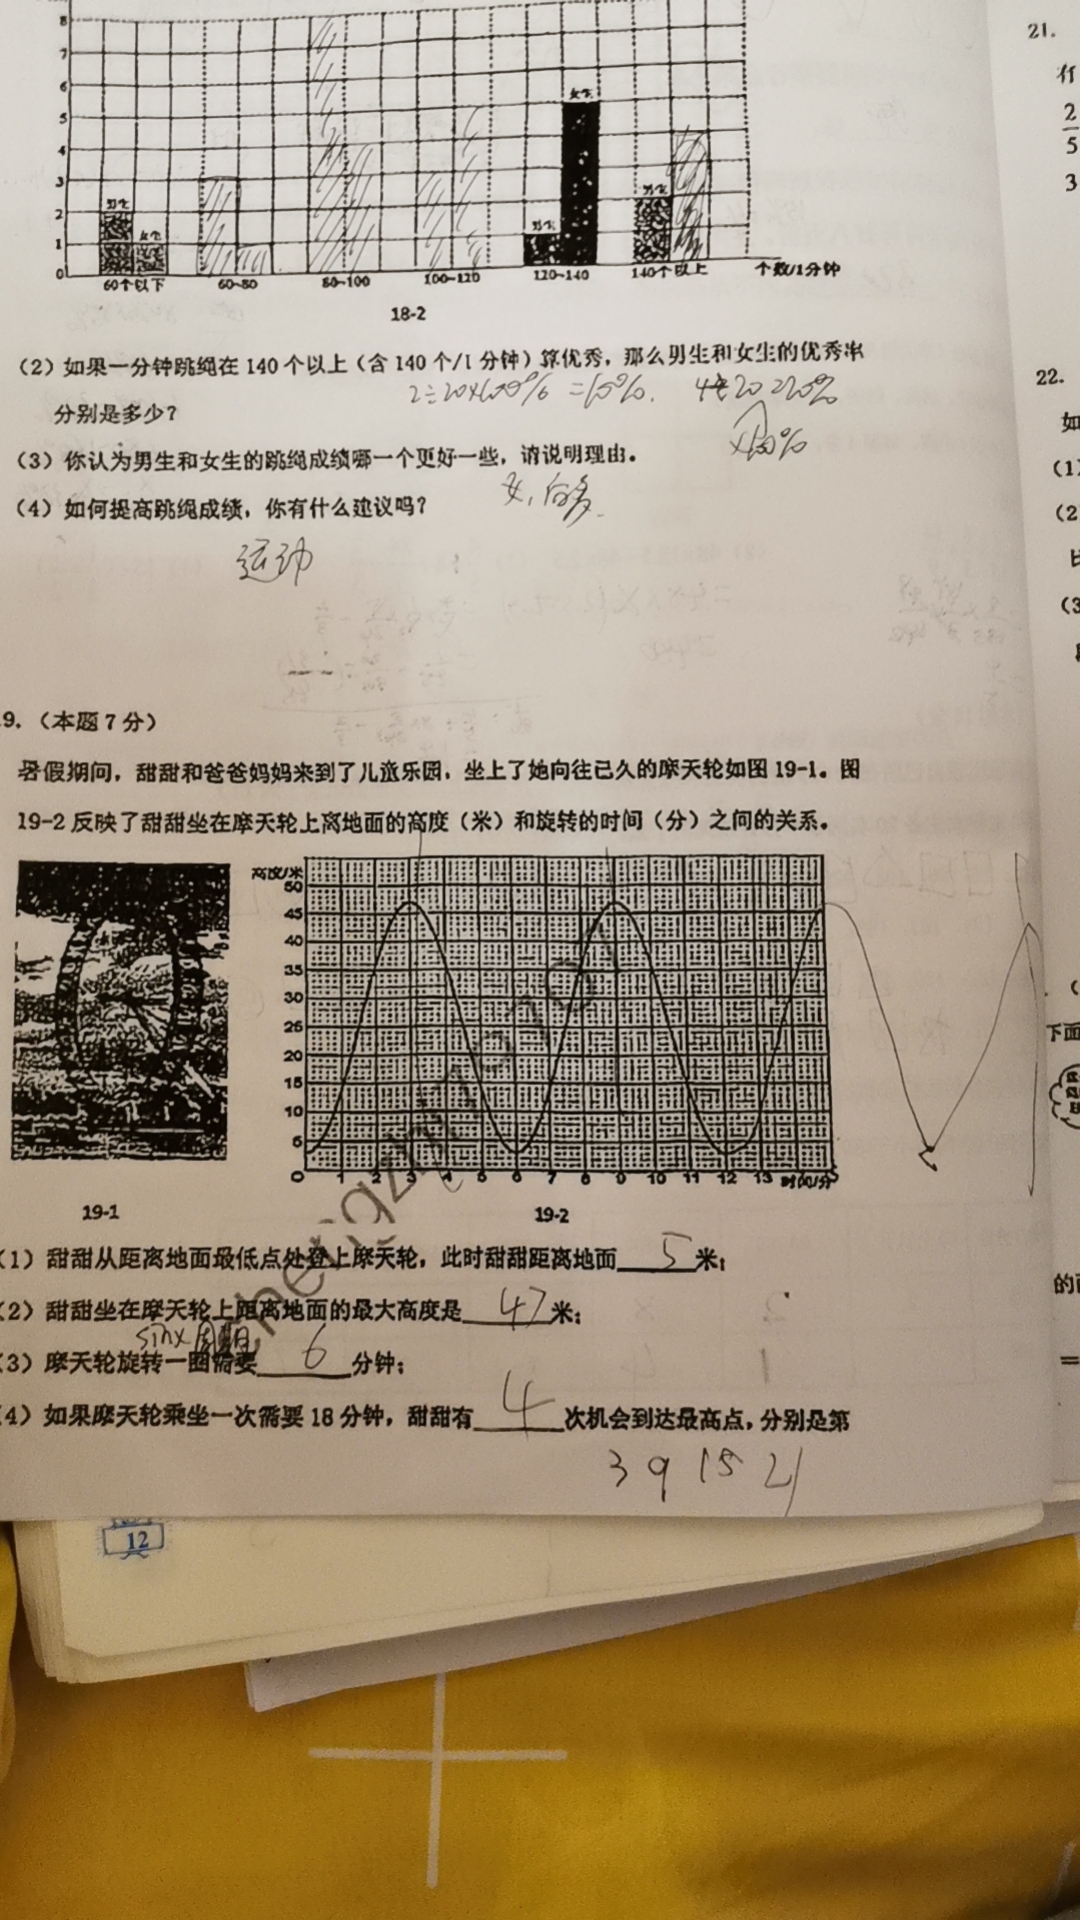 8
7
6
5
4
3
2
1
0
男生 女生 男生 女生 男生
60个以下 60~80 80~100 100~120 120~140 140个以上 个数/1分钟
18-2
（2）如果一分钟跳绳在140个以上（含140个/1分钟）算优秀，那么男生和女生的优秀率
分别是多少？
2÷20×100% =10%.
×100%
（3）你认为男生和女生的跳绳成绩哪一个更好一些，请说明理由。
女，
（4）如何提高跳绳成绩，你有什么建议吗？
运动
9.（本题7分）
暑假期间，甜甜和爸爸妈妈来到了儿童乐园，坐上了她向往已久的摩天轮如图19-1。图
19-2反映了甜甜坐在摩天轮上离地面的高度（米）和旋转的时间（分）之间的关系。
高度/米
50
45
40
35
30
25
20
15
10
5
0 1 2 3 4 5 6 7 8 9 10 11 12 13 时间/分
19-1 19-2
（1）甜甜从距离地面最低点处登上摩天轮，此时甜甜距离地面 5 米；
（2）甜甜坐在摩天轮上距离地面的最大高度是 47 米；
sinx 周期
（3）摩天轮旋转一圈需要 6 分钟；
（4）如果摩天轮乘坐一次需要18分钟，甜甜有 4 次机会到达最高点，分别是第
3 9 15 21
12
21.
2
5
3
22.
如
（1）
（2
（3
下面
的
=